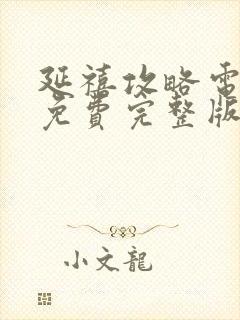 延禧攻略電
免費完整版
小文龍